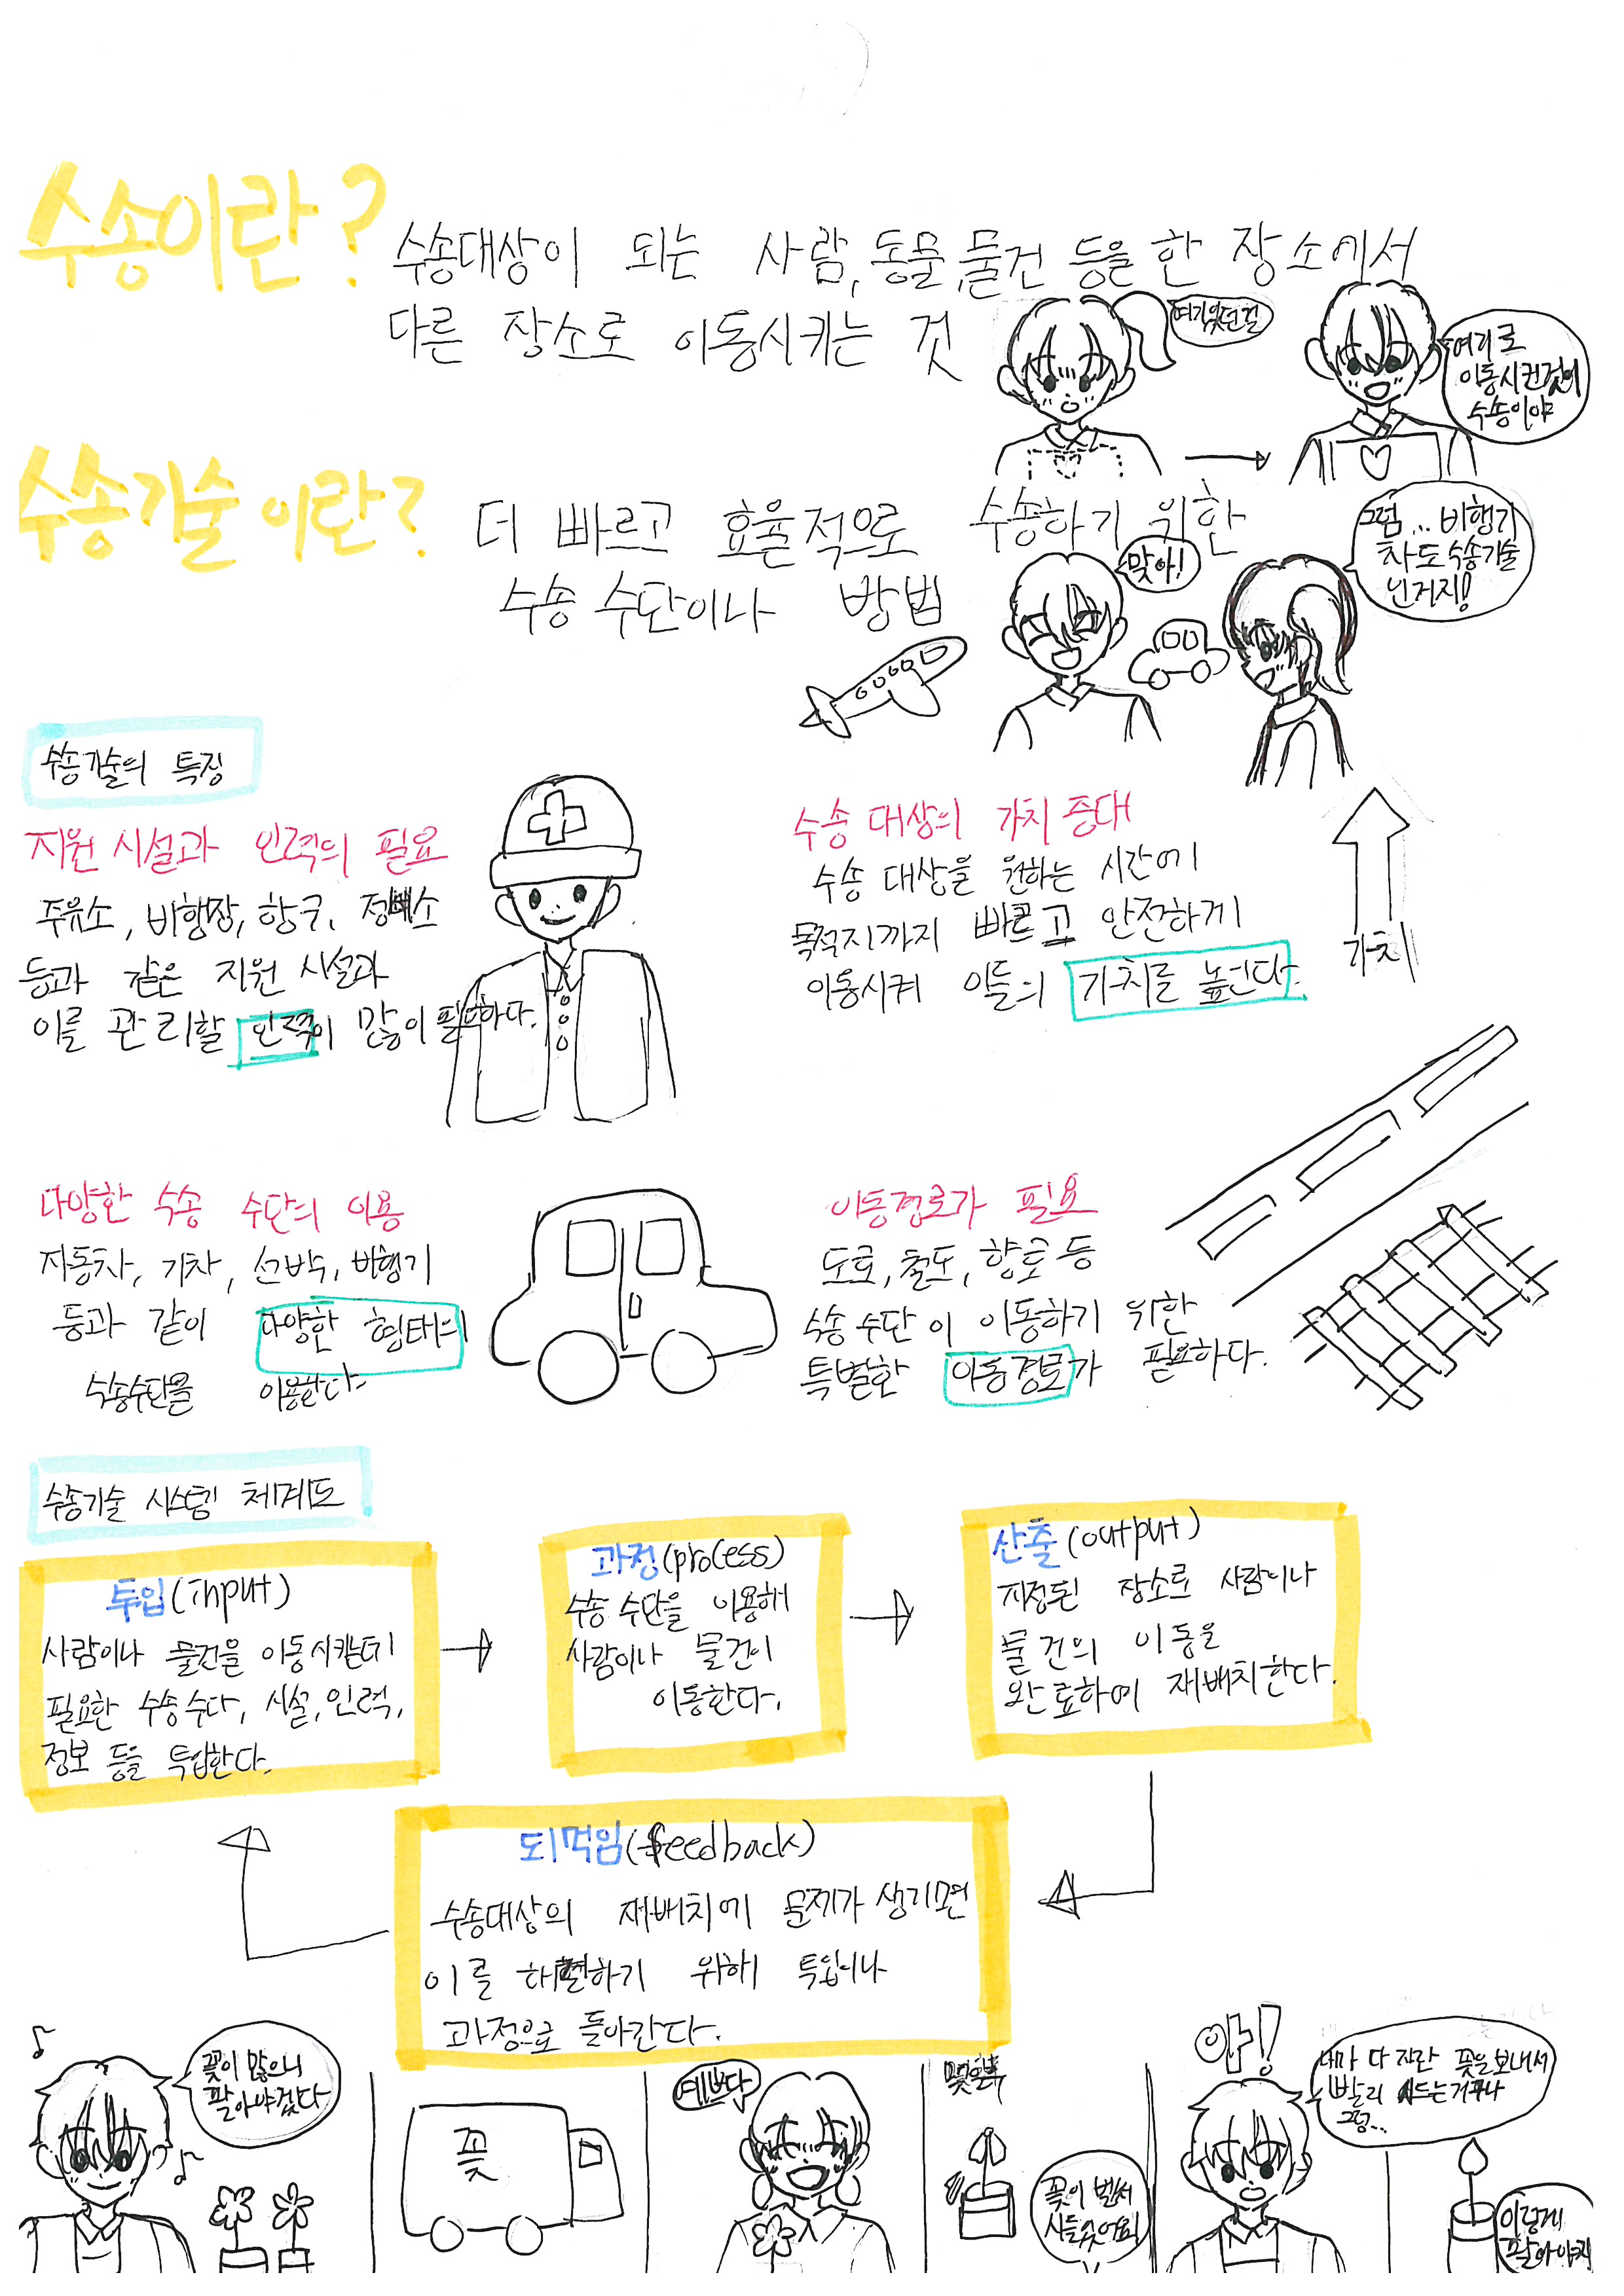 수송이란?
수송대상이 되는 사람, 동물, 물건 등을 한 장소에서
다른 장소로 이동시키는 것
여기로
이동시킨것이
수송이야
수송기술이란?
더 빠르고 효율적으로 수송하기 위한
수송 수단이나 방법
맞아!
그럼... 비행기
차도 수송기술
인거지!
수송기술의 특징
지원 시설과 인력의 필요
주유소, 비행장, 항구, 정비소
등과 같은 지원 시설과
이를 관리할 인력이 많이 필요하다.
수송 대상의 가치 증대
수송 대상을 원하는 시간에
목적지까지 빠르고 안전하게
이동시켜 이들의 가치를 높인다.
가치
다양한 수송 수단의 이용
자동차, 기차, 선박, 비행기
등과 같이 다양한 형태의
수송수단을 이용한다.
이동경로가 필요
도로, 철도, 항로 등
수송 수단이 이동하기 위한
특별한 이동경로가 필요하다.
수송기술 시스템 체계도
투입(input)
사람이나 물건을 이동시킬때
필요한 수송수다, 시설, 인력,
정보 등을 투입한다.
과정(process)
수송 수단을 이용해
사람이나 물건이
이동한다.
산출(output)
지정된 장소로 사람이나
물건의 이동을
완료하여 재배치한다.
되먹임(feedback)
수송대상의 재배치에 문제가 생기면
이를 해결하기 위해 투입이나
과정으로 돌아간다.
꽃이 많으니
팔아야겠다
꽃
예쁘다
꽃이 벌써
시들었어요!
아!
내가 다 자란 꽃을 보내서
빨리 시드는거구나
그럼...
이렇게
팔아야지